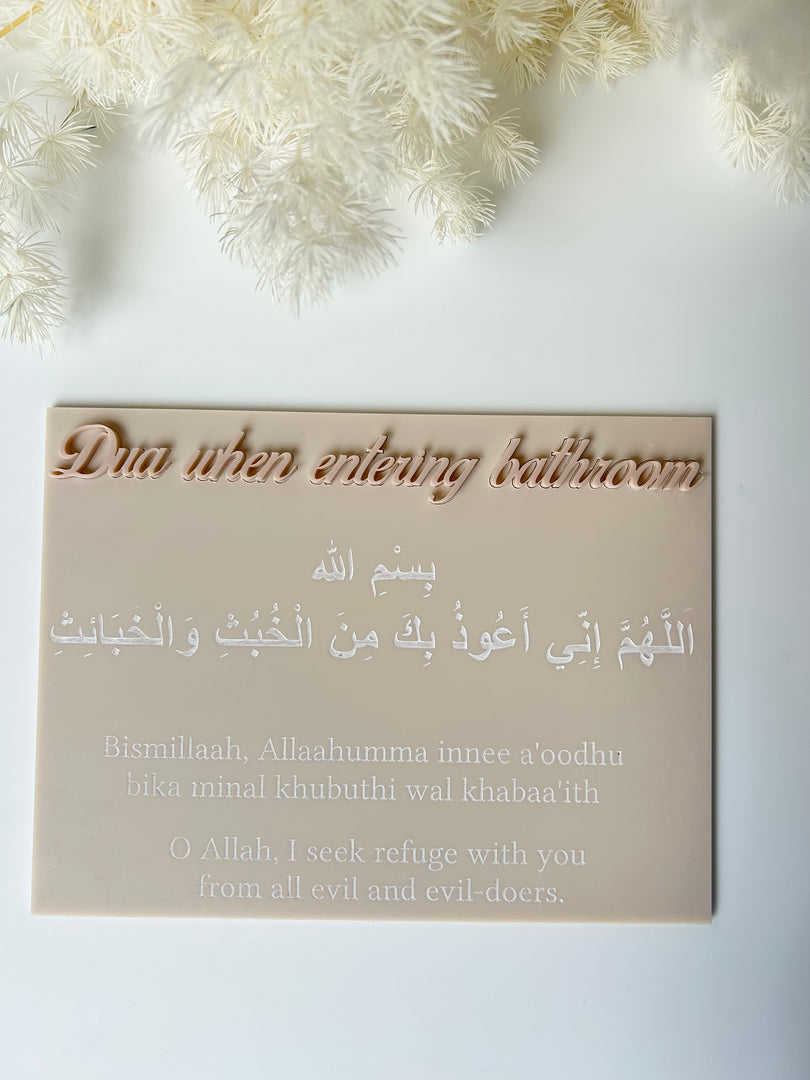 Dua when entering bathroom
بِسْمِ الله
اَللَّهُمَّ إِنِّي أَعُوذُ بِكَ مِنَ الْخُبُثِ وَالْخَبَائِثِ
Bismillaah, Allaahumma innee a'oodhu
bika minal khubuthi wal khabaa'ith
O Allah, I seek refuge with you
from all evil and evil-doers.